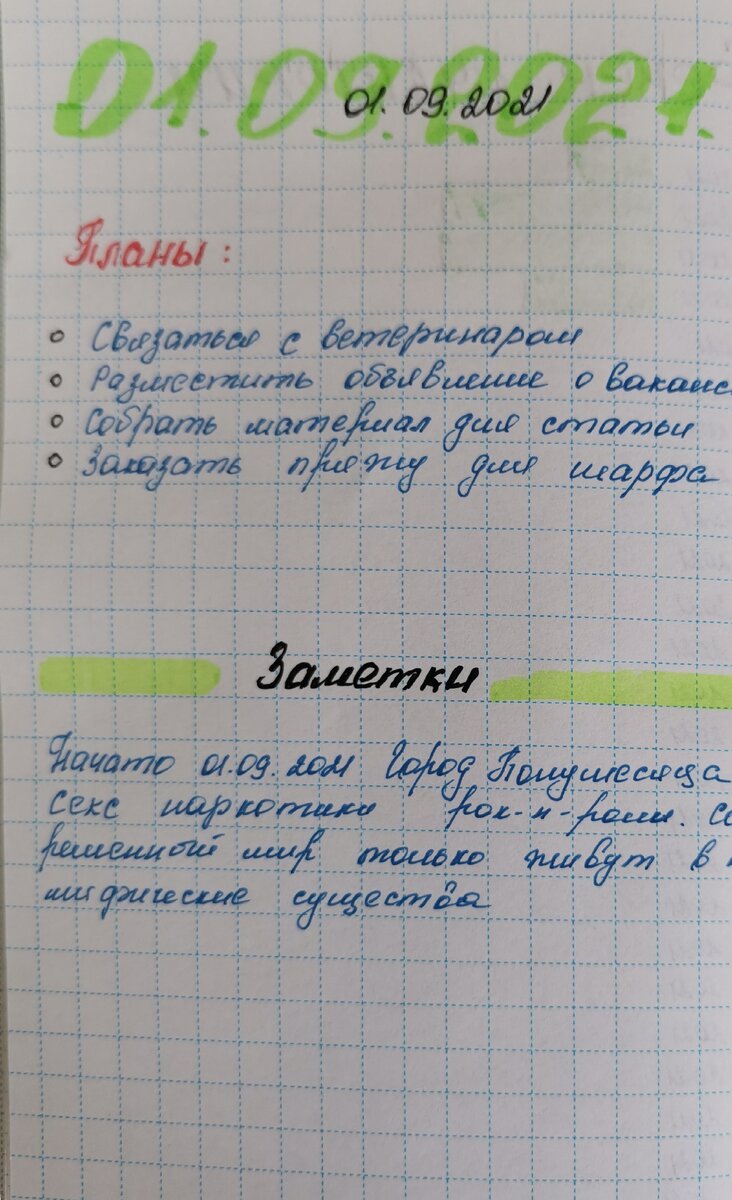 01.09.2021.
01.09.2021
Планы:
Связаться с ветеринаром
Разместить объявление о ваканс
Собрать материал для статьи
Заказать пряжу для шарфа
Заметки
Начато 01.09.2021 Город Полумесяца
Секс наркотики рок-н-ролл.
ременный мир только живут в
мифические существа